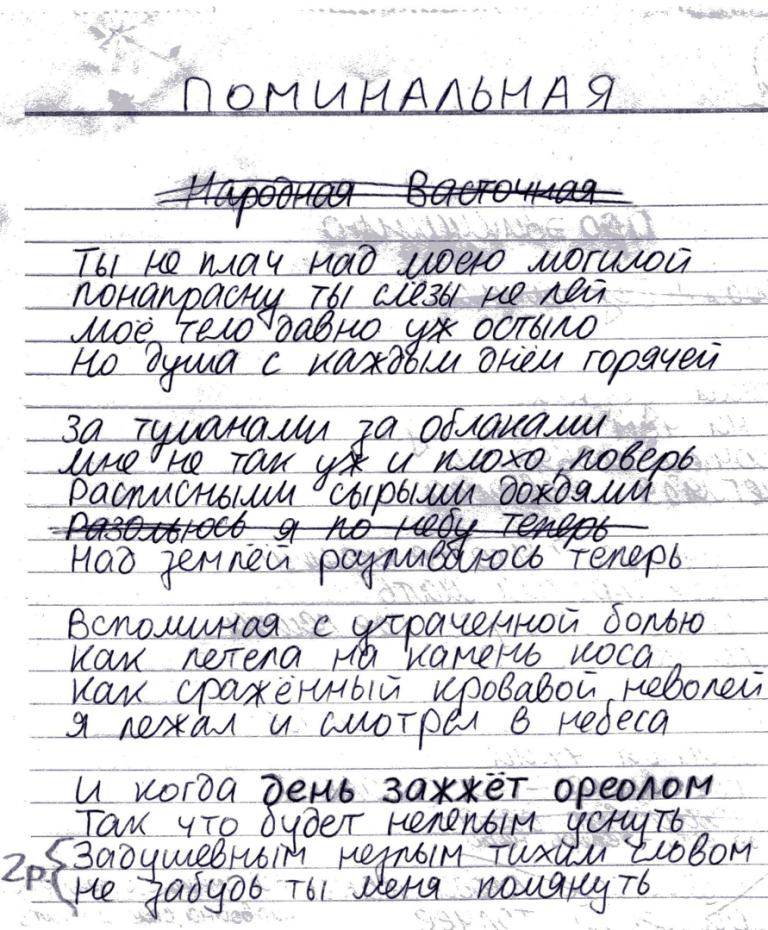 ПОМИНАЛЬНАЯ
Народная Васточная
Ты не плач над моею могилой
понапрасну ты слёзы не лей
моё тело давно уж остыло
но душа с каждым днём горячей
За туманами за облаками
мне не так уж и плохо поверь
Расписными сырыми дождями
Разольюсь я по небу теперь
Над землёй разливаюсь теперь
Вспоминая с утраченной болью
как летела на камень коса
как сражённый кровавой неволей
я лежал и смотрел в небеса
И когда день зажжёт ореолом
Так что будет нелепым уснуть
2р. Задушевным незлым тихим словом
не забудь ты меня помянуть